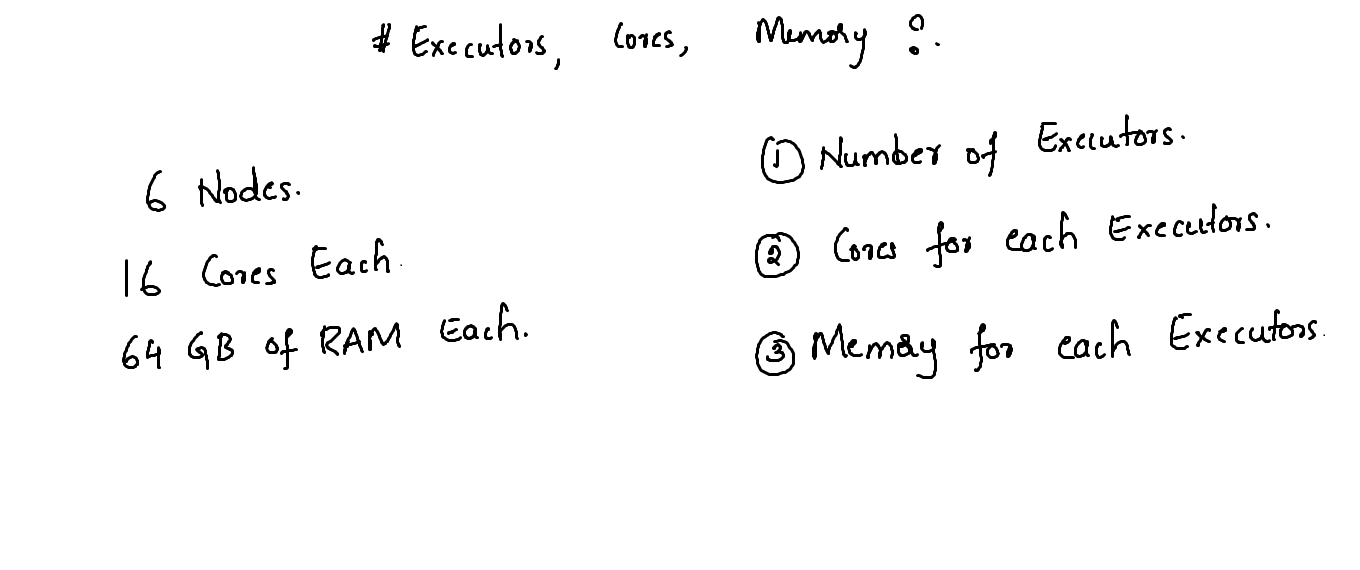 # Executors, Cores, Memory :
6 Nodes.
16 Cores Each.
64 GB of RAM Each.
① Number of Executors.
② Cores for each Executors.
③ Memory for each Executors.